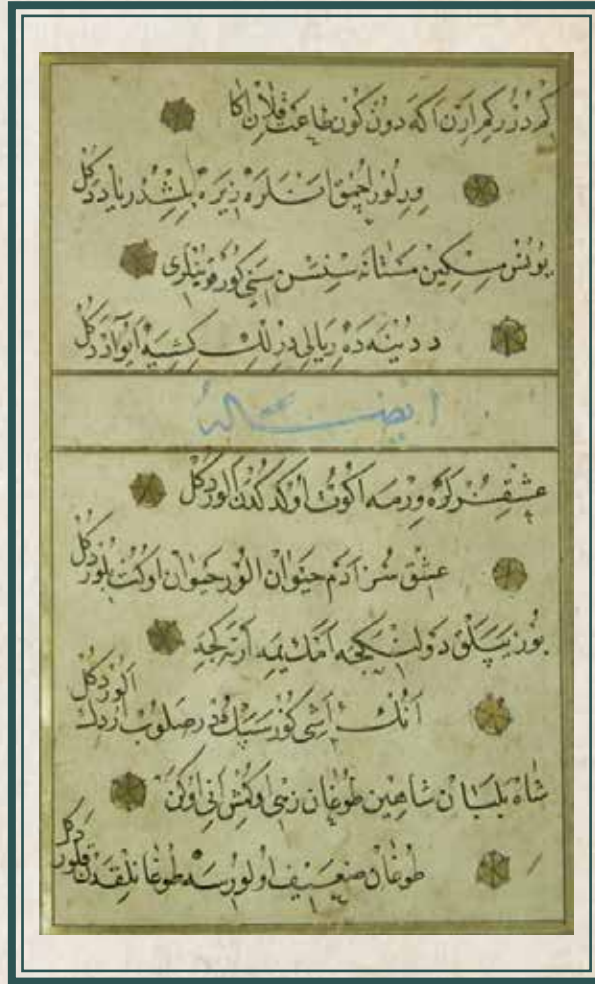 كم دزر كم ارن اكه دون كون طاعت قلان اكا
ورلور اجق اسنلره زيره بلمشدر ياد دكل
يونس مسكين مستانه سنسن سني كور قوينلري
د دنيه ده ريالي درلك كشيه آيو آد دكل
ايضا له
عشقسزلره ورمه اكوت اوكددن الور دكل
عشق سز ادم حيوان الور حيوان اوكت بلور دكل
بوز يپلاق دولنكجه امك يمه ارته كجه
انك اشي كوزسپك در صلوب اردك الور دكل
شاه بلبان شاهين طوغان زهي اوكش اني اوكن
طوغان ضعيف اولورسه طوغانلقدن قلور دكل